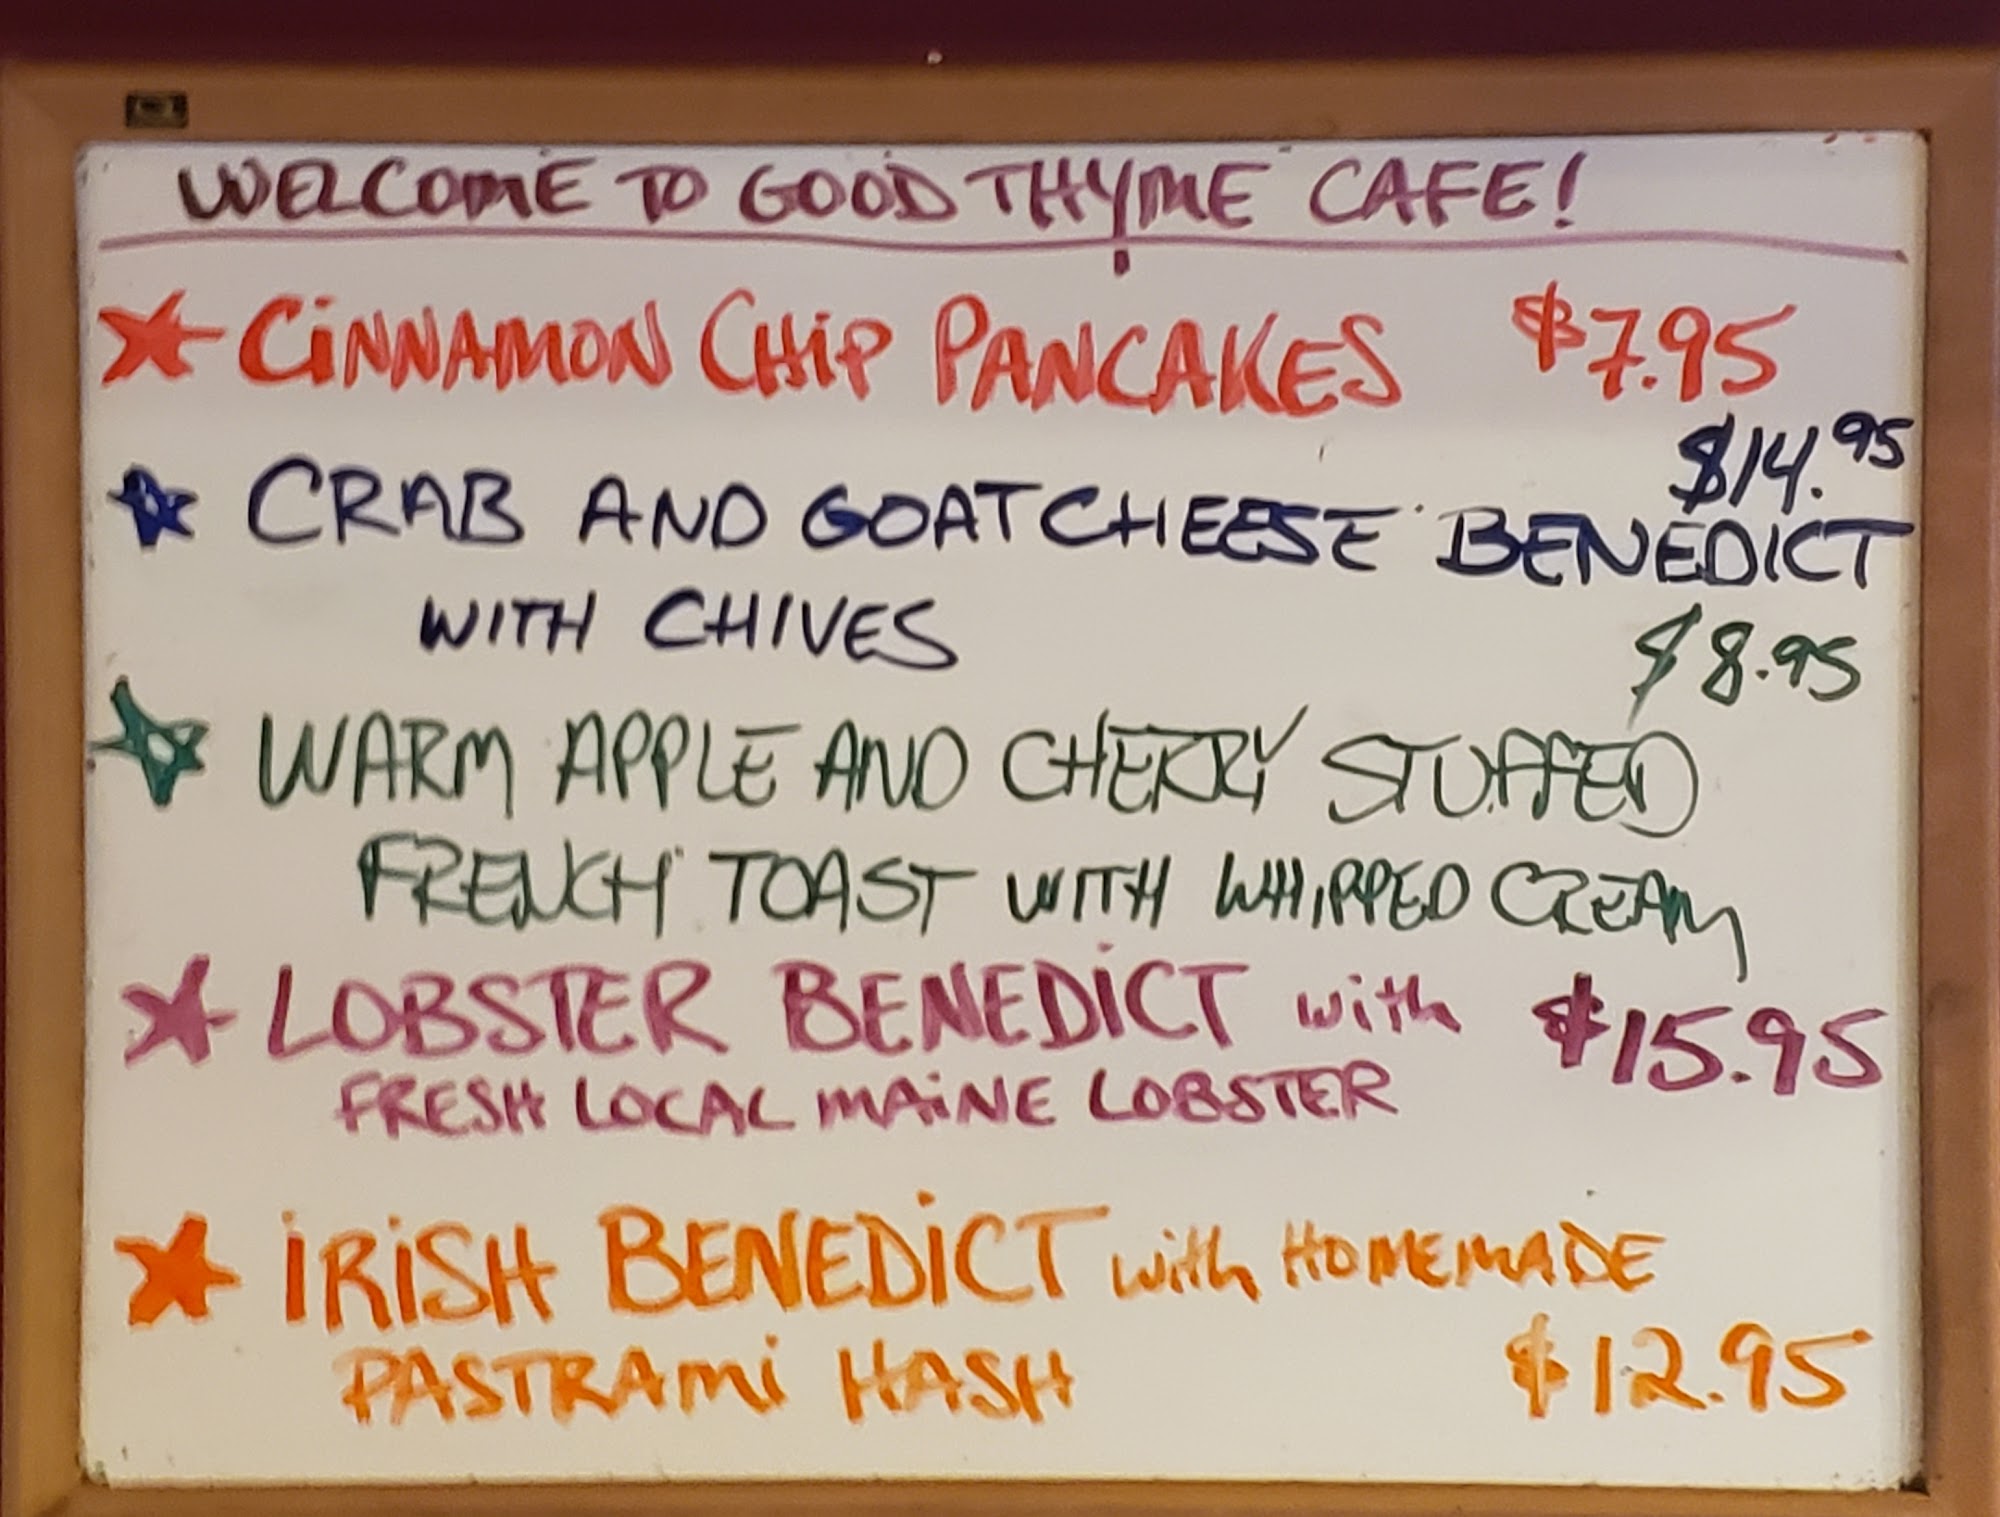 WELCOME TO GOOD THYME CAFE!
CiNNAMON CHiP PANCAKES $7.95
$14.95
CRAB AND GOAT CHEESE BENEDICT
WITH CHIVES
$8.95
WARM APPLE AND CHERRY STUFFED
FRENCH TOAST WITH WHIPPED CREAM
LOBSTER BENEDiCT with $15.95
FRESH LOCAL MAiNE LOBSTER
iRiSH BENEDiCT with HOMEMADE
PASTRAMi HASH $12.95